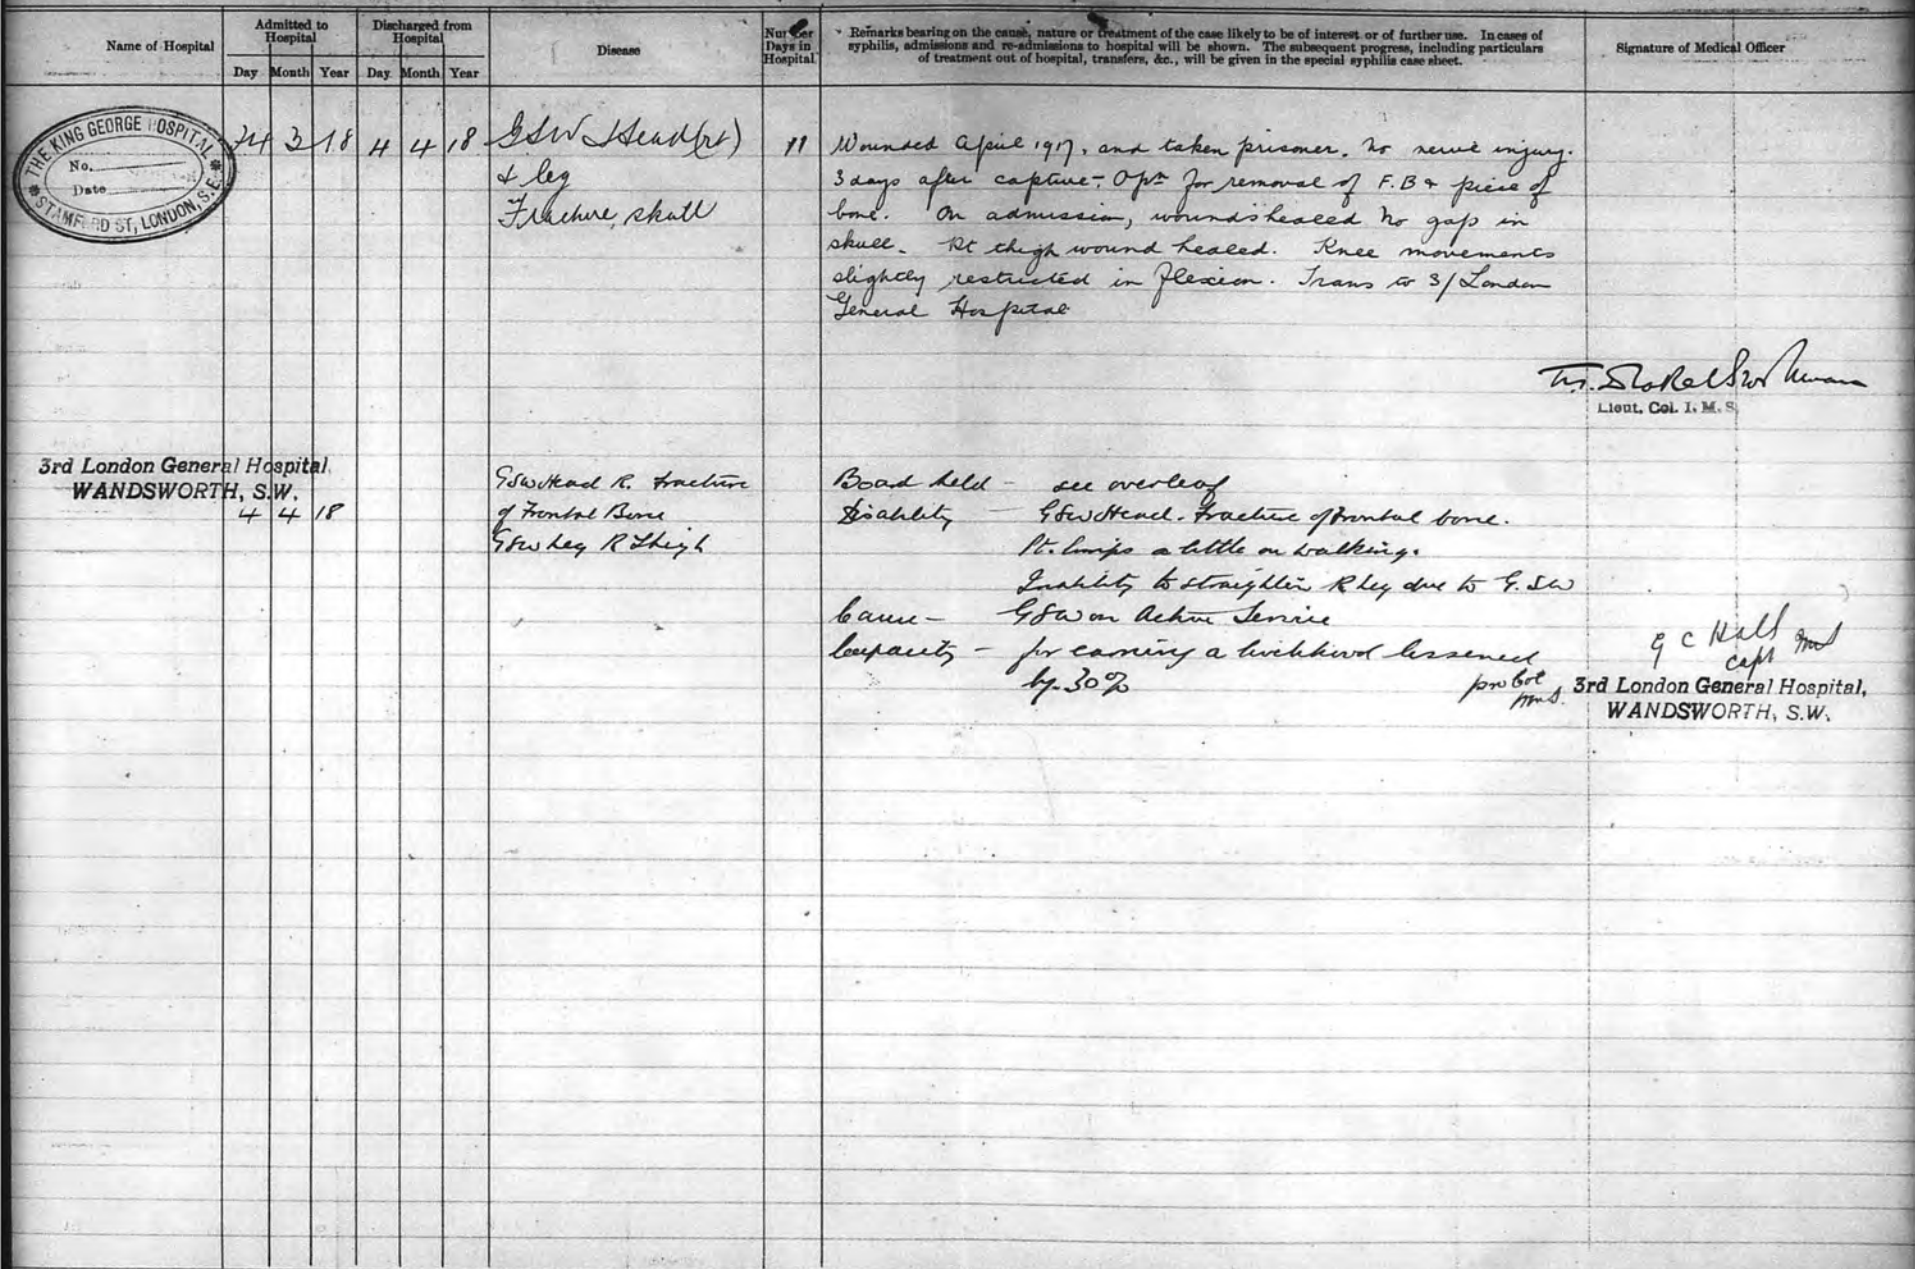 Name of Hospital
Admitted to Hospital
Day Month Year
Discharged from Hospital
Day Month Year
Disease
Number Days in Hospital
Remarks bearing on the cause, nature or treatment of the case likely to be of interest or of further use. In cases of
syphilis, admissions and re-admissions to hospital will be shown. The subsequent progress, including particulars
of treatment out of hospital, transfers, &c., will be given in the special syphilis case sheet.
Signature of Medical Officer
THE KING GEORGE HOSPITAL
No.
Date
STAMFORD ST, LONDON, S.E.
24 3 18 4 4 18
GSW Head (rt)
& leg
Fracture, skull
11
Wounded April 1917, and taken prisoner. No nerve injury.
3 days after capture - Opn for removal of F.B & piece of
bone. On admission, wounds healed No gap in
skull. Rt thigh wound healed. Knee movements
slightly restricted in flexion. Trans to 3/London
General Hospital
Lieut. Col. I. M. S.
3rd London General Hospital,
WANDSWORTH, S.W.
4 4 18
GSW Head R. Fracture
of Frontal Bone
GSW Leg R Thigh
Board held - see overleaf
Disability - GSW Head. Fracture of Frontal bone.
Pt. limps a little on walking.
Inability to straighten R leg due to G.S.W
Cause - GSW on Active Service
Capacity - for earning a livelihood lessened
by 30%
G C Hall
Capt
3rd London General Hospital,
WANDSWORTH, S.W.